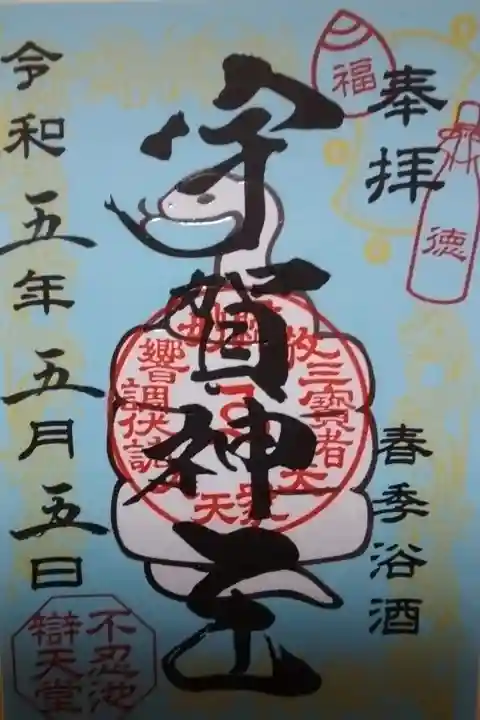 奉拝
福
徳
春季浴酒
宇賀神王
令和五年五月五日
不忍池
辯天堂